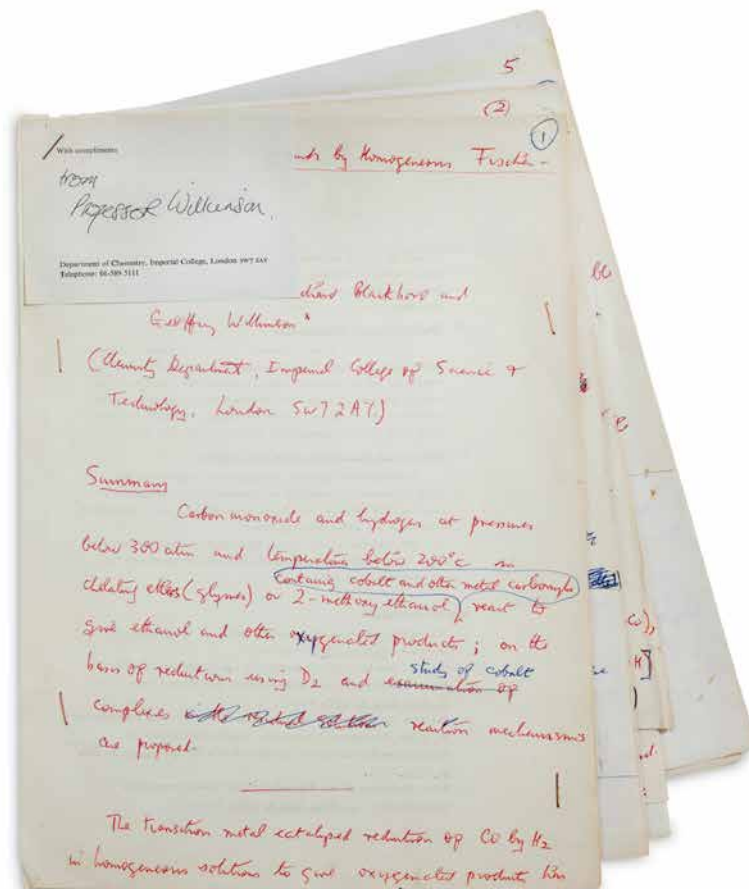 5
(2)
1
With compliments
from
Professor Wilkinson.
Department of Chemistry, Imperial College, London SW7 2AY
Telephone: 01-589 5111
by Homogeneous Fischer-
Blackborow and
Geoffrey Wilkinson*
(Chemistry Department, Imperial College of Science &
Technology, London SW7 2AY.)
Summary
Carbon monoxide and hydrogen at pressures
below 300 atm and temperatures below 200°C in
containing cobalt and other metal carbonyls
chelating ethers (glymes) or 2-methoxy ethanol, react to
give ethanol and other oxygenated products; on the
study of cobalt
basis of reductions using D2 and examination of
complexes reaction mechanisms
are proposed.
The transition metal catalysed reduction of CO by H2
in homogeneous solutions to give oxygenated products has